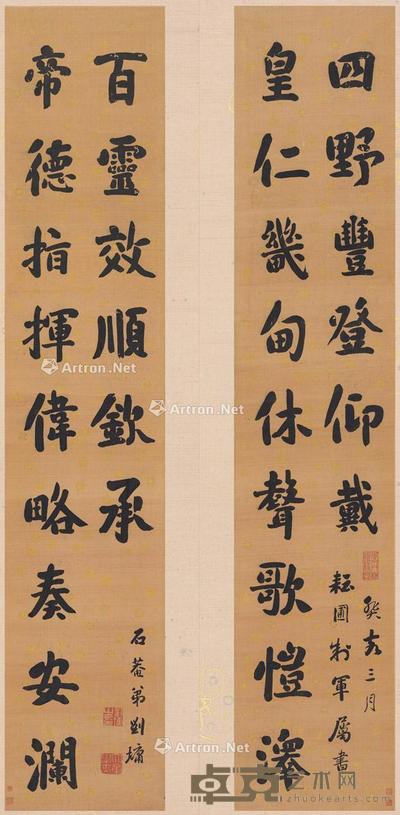 四野豐登仰戴
皇仁畿甸休聲歌愷澤
癸亥三月
耘圃制軍屬書
百靈效順欽承
帝德指揮偉略奏安瀾
石菴弟劉墉
Artron.Net
Artron.Net
Artron.Net
Artron.Net
Artron.Net
卓克艺术网
zhuokearts.com